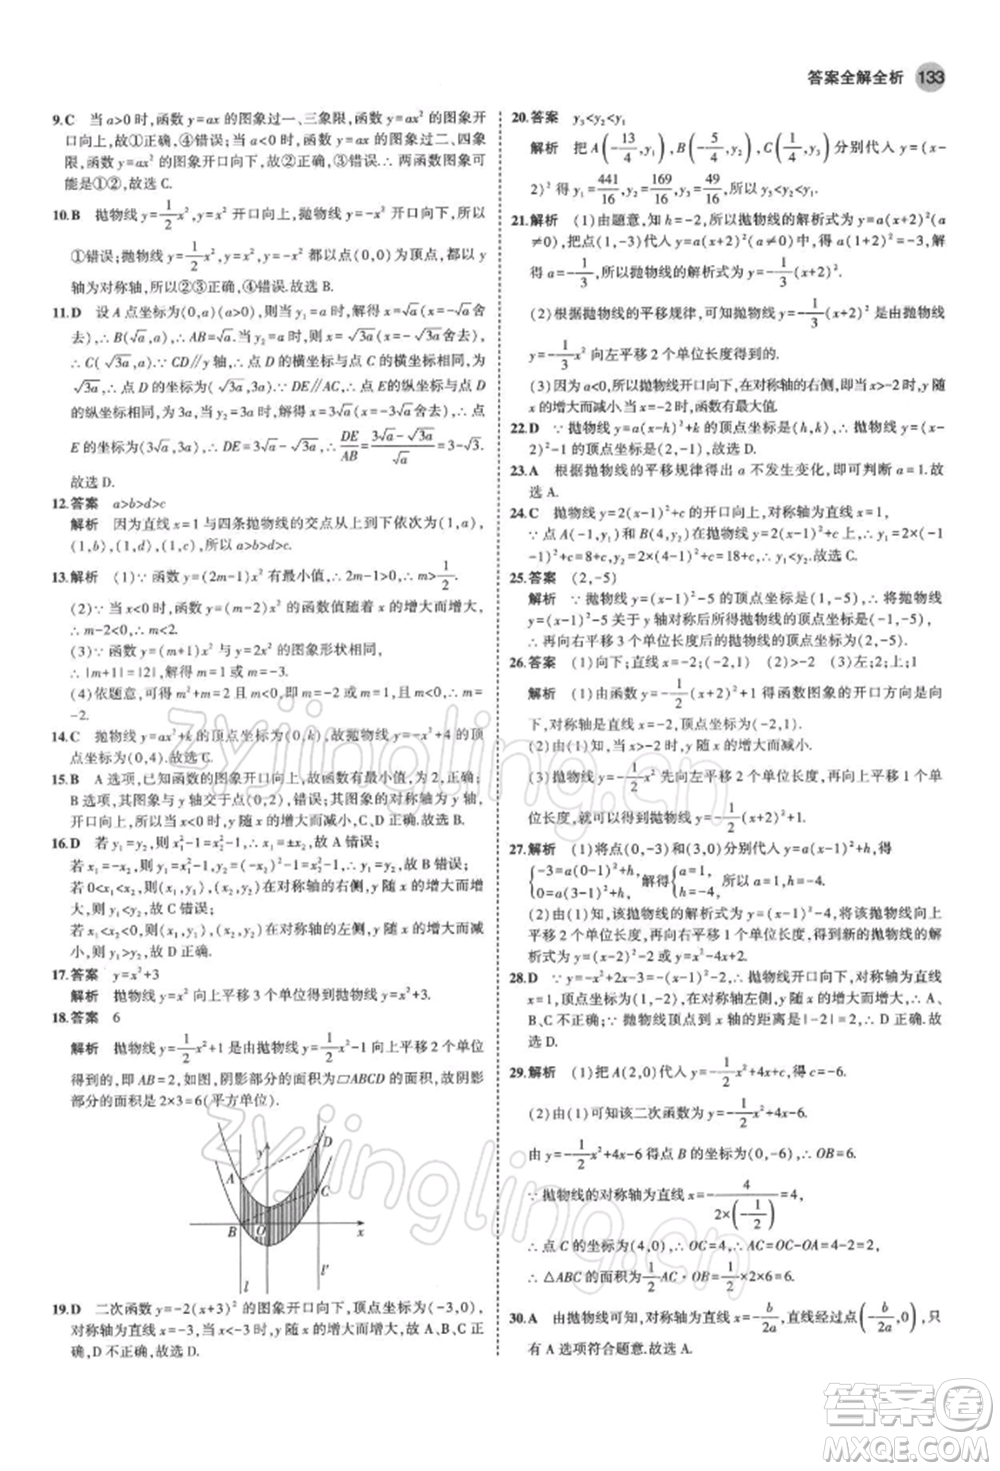 答案全解全析 133
9.C 当 a>0 时,函数 y=ax 的图象过一、三象限,函数 y=ax² 的图象开
口向上,故①正确,④错误;当 a<0 时,函数 y=ax 的图象过二、四象
限,函数 y=ax² 的图象开口向下,故②正确,③错误.∴ 两函数图象可
能是①②,故选 C.
10.B 抛物线 y=1/2x²,y=x² 开口向上,抛物线 y=-x² 开口向下,所以
①错误;抛物线 y=1/2x²,y=x²,y=-x² 都以点(0,0)为顶点,以 y
轴为对称轴,所以②③正确,④错误.故选 B.
11.D 设 A 点坐标为(0,a)(a>0),则当 y₁=a 时,解得 x=√a(-√a舍
去),∴ B(√a,a),∴ AB=√a.当 y₂=a 时,则 x=√3a(-√3a舍去),
∴ C(√3a,a).∵ CD//y 轴,∴ 点 D 的横坐标与点 C 的横坐标相同,为
√3a,∴ 点 D 的坐标为(√3a,3a).∵ DE//AC,∴ 点 E 的纵坐标与点 D
的纵坐标相同,为 3a,当 y₂=3a 时,解得 x=3√a(-3√a舍去),∴ 点
E 的坐标为(3√a,3a),∴ DE=3√a-√3a,∴ DE/AB=(3√a-√3a)/√a=3-√3.
故选 D.
12.答案 a>b>d>c
解析 因为直线 x=1 与四条抛物线的交点从上到下依次为(1,a),
(1,b),(1,d),(1,c),所以 a>b>d>c.
13.解析 (1)∵ 函数 y=(2m-1)x² 有最小值,∴ 2m-1>0,∴ m>1/2.
(2)∵ 当 x<0 时,函数 y=(m-2)x² 的函数值随 x 的增大而增大,
∴ m-2<0,∴ m<2.
(3)∵ 函数 y=(m+1)x² 与 y=2x² 的图象形状相同,
∴ |m+1|=|2|,解得 m=1 或 m=-3.
(4)依题意,可得 m²+m=2,且 m+1>0,解得 m=1 或 m=
-2.
14.C 抛物线 y=ax²+k 的顶点坐标为(0,k),故抛物线 y=-x²+4 的顶
点坐标为(0,4).故选 C.
15.B A 选项,已知函数的图象开口向上,函数有最小值,为 2,错误;
B 选项,其图象与 y 轴交于点(0,2),错误;其图象的对称轴为 y 轴,
且开口向上,所以当 x<0 时,y 随 x 的增大而减小,C、D 正确.故选 B.
16.D 若 y₁=y₂,则 x₁²-1=x₂²-1,∴ x₁=±x₂,故 A 错误;
若 x₁=-x₂,则 x₁²-1=x₂²-1,∴ y₁=y₂,故 B 错误;
若 0<x₁<x₂,则(x₁,y₁),(x₂,y₂)在对称轴的右侧,y 随 x 的增大而增
大,则 y₁<y₂,故 C 错误;
若 x₁<x₂<0,则(x₁,y₁),(x₂,y₂)在对称轴的左侧,y 随 x 的增大而减
小,则 y₁>y₂,故 D 正确.
17.答案 y=x²+3
解析 抛物线 y=x² 向上平移 3 个单位得到抛物线 y=x²+3.
18.答案 6
解析 抛物线 y=1/2x²+1 是由抛物线 y=1/2x²-1 向上平移 2 个单位
得到的,即 AB=2,如图,阴影部分的面积为▱ABCD 的面积,故阴影
部分的面积是 2×3=6(平方单位).
y
D
A
C
B
O
x
l
l'
19.D 二次函数 y=-2(x+3)² 的图象开口向下,顶点坐标为(-3,0),
对称轴为直线 x=-3,当 x<-3 时,y 随 x 的增大而增大,故 A、B、C
错误,D 正确.故选 D.
20.答案 y₃<y₂<y₁
解析 把 A(-13/4,y₁),B(-5/4,y₂),C(1/4,y₃)分别代入 y=(x-
2)² 得 y₁=441/16,y₂=169/16,y₃=49/16,所以 y₃<y₂<y₁.
21.解析 (1)由题意,知 h=-2,故抛物线的解析式为 y=a(x+2)²(a
≠0),把点(1,-3)代入 y=a(x+2)²(a≠0)中,得 a(1+2)²=-3,解
得 a=-1/3,所以抛物线的解析式为 y=-1/3(x+2)².
(2)根据抛物线的平移规律,可知 y=-1/3(x+2)² 是由抛物线
y=-1/3x² 向左平移 2 个单位得到的.
(3)因为 a<0,所以抛物线开口向下,在对称轴的右侧,即 x>-2 时,y
随 x 的增大而减小.当 x=-2 时,函数有最大值.
22.D ∵ 抛物线 y=a(x-h)²+k 的顶点坐标为(h,k),∴ 抛物线 y=(x-
2)²-1 的顶点坐标为(2,-1),故选 D.
23.A 根据抛物线的平移规律得出 a 不发生变化,即可判断 a=1.故
选 A.
24.C 抛物线 y=2(x-1)²+c 的开口向上,对称轴为直线 x=1,
∵ 点 A(-1,y₁)和 B(4,y₂)在抛物线上,∴ y₁=2×(-1-
1)²+c=8+c,y₂=2×(4-1)²+c=18+c,∴ y₂>y₁>c.故选 C.
25.答案 (2,-5)
解析 ∵ 抛物线 y=(x-1)²-5 的顶点坐标为(1,-5),∴ 抛物线
y=(x-1)²-5 关于 y 轴对称后所得抛物线的顶点坐标为(-1,-5),
∴ 再向右平移 3 个单位长度后的抛物线的顶点坐标为(2,-5).
26.答案 (1)向下;直线 x=-2;(-2,1) (2)>-2 (3)左;2;上;1
解析 (1)由函数 y=-1/2(x+2)²+1 得函数图象的开口方向是向
下,对称轴是直线 x=-2,顶点坐标为(-2,1).
(2)由函数的性质得,当 x>-2 时,y 随 x 的增大而减小.
(3)抛物线 y=-1/2x² 先向左平移 2 个单位长度,再向上平移 1 个单
位长度,就可以得到抛物线 y=-1/2(x+2)²+1.
27.解析 (1)将点(0,-3)和(3,0)分别代入 y=a(x-1)²+h,得
{-3=a(0-1)²+h, 0=a(3-1)²+h, 解得{a=1, h=-4, 所以 a=1,h=-4.
(2)由(1)知,该抛物线的解析式为 y=(x-1)²-4,将该抛物线向上
平移 2 个单位长度,再向右平移 1 个单位长度后,所得新的抛物线的解
析式为 y=(x-2)²-2,即 y=x²-4x+2.
28.D ∵ y=-x²+2x-3=-(x-1)²-2,∴ 抛物线开口向下,对称轴为直线
x=1,顶点坐标为(1,-2),在对称轴左侧,y 随 x 的增大而增大,∴ A、
B、C 不符合题意.∵ 抛物线顶点到 x 轴的距离是|-2|=2,∴ D 符合题
意.故选 D.
29.解析 (1)把 A(2,0)代入 y=-1/2x²+4x+c,得 c=-6.
(2)由(1)可知该二次函数为 y=-1/2x²+4x-6,
由 y=-1/2x²+4x-6 得点 B 的坐标为(0,-6),∴ OB=6.
∵ 抛物线的对称轴为直线 x=-4/(2×(-1/2))=4,
∴ 点 C 的坐标为(4,0),∴ OC=4,∴ AC=OC-OA=4-2=2,
∴ △ABC 的面积为1/2AC·OB=1/2×2×6=6.
30.A 由抛物线可知,对称轴为直线 x=-b/2a,直线经过点(-b/2a,0),只
有 A 选项符合题意.故选 A.
zyjingling.cn
zyjingling.cn
答案圈
MXQE.COM